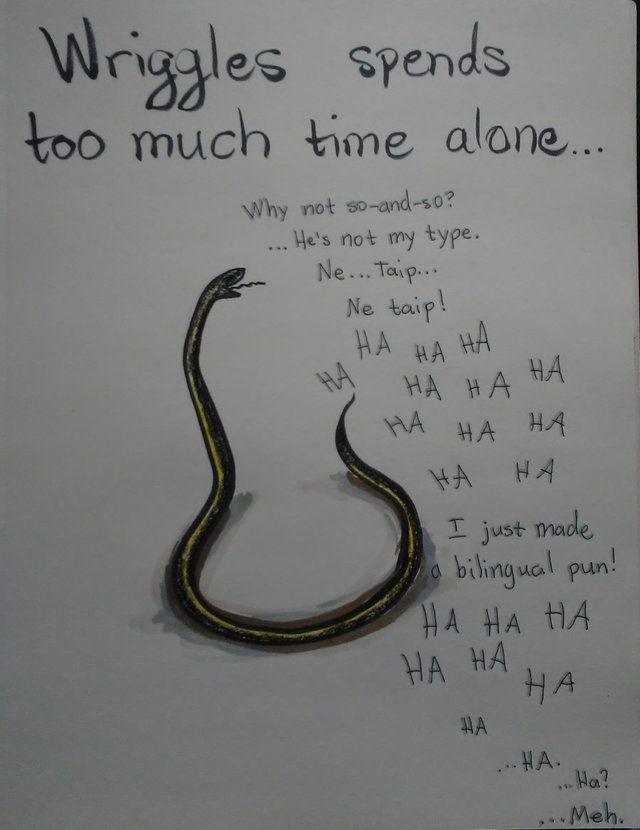 Wriggles spends
too much time alone...
Why not so-and-so?
... He's not my type.
Ne... Taip...
Ne taip!
HA HA HA
HA HA HA HA
HA HA HA
HA HA
I just made
a bilingual pun!
HA HA HA
HA HA HA
HA
...HA.
...Ha?
...Meh.